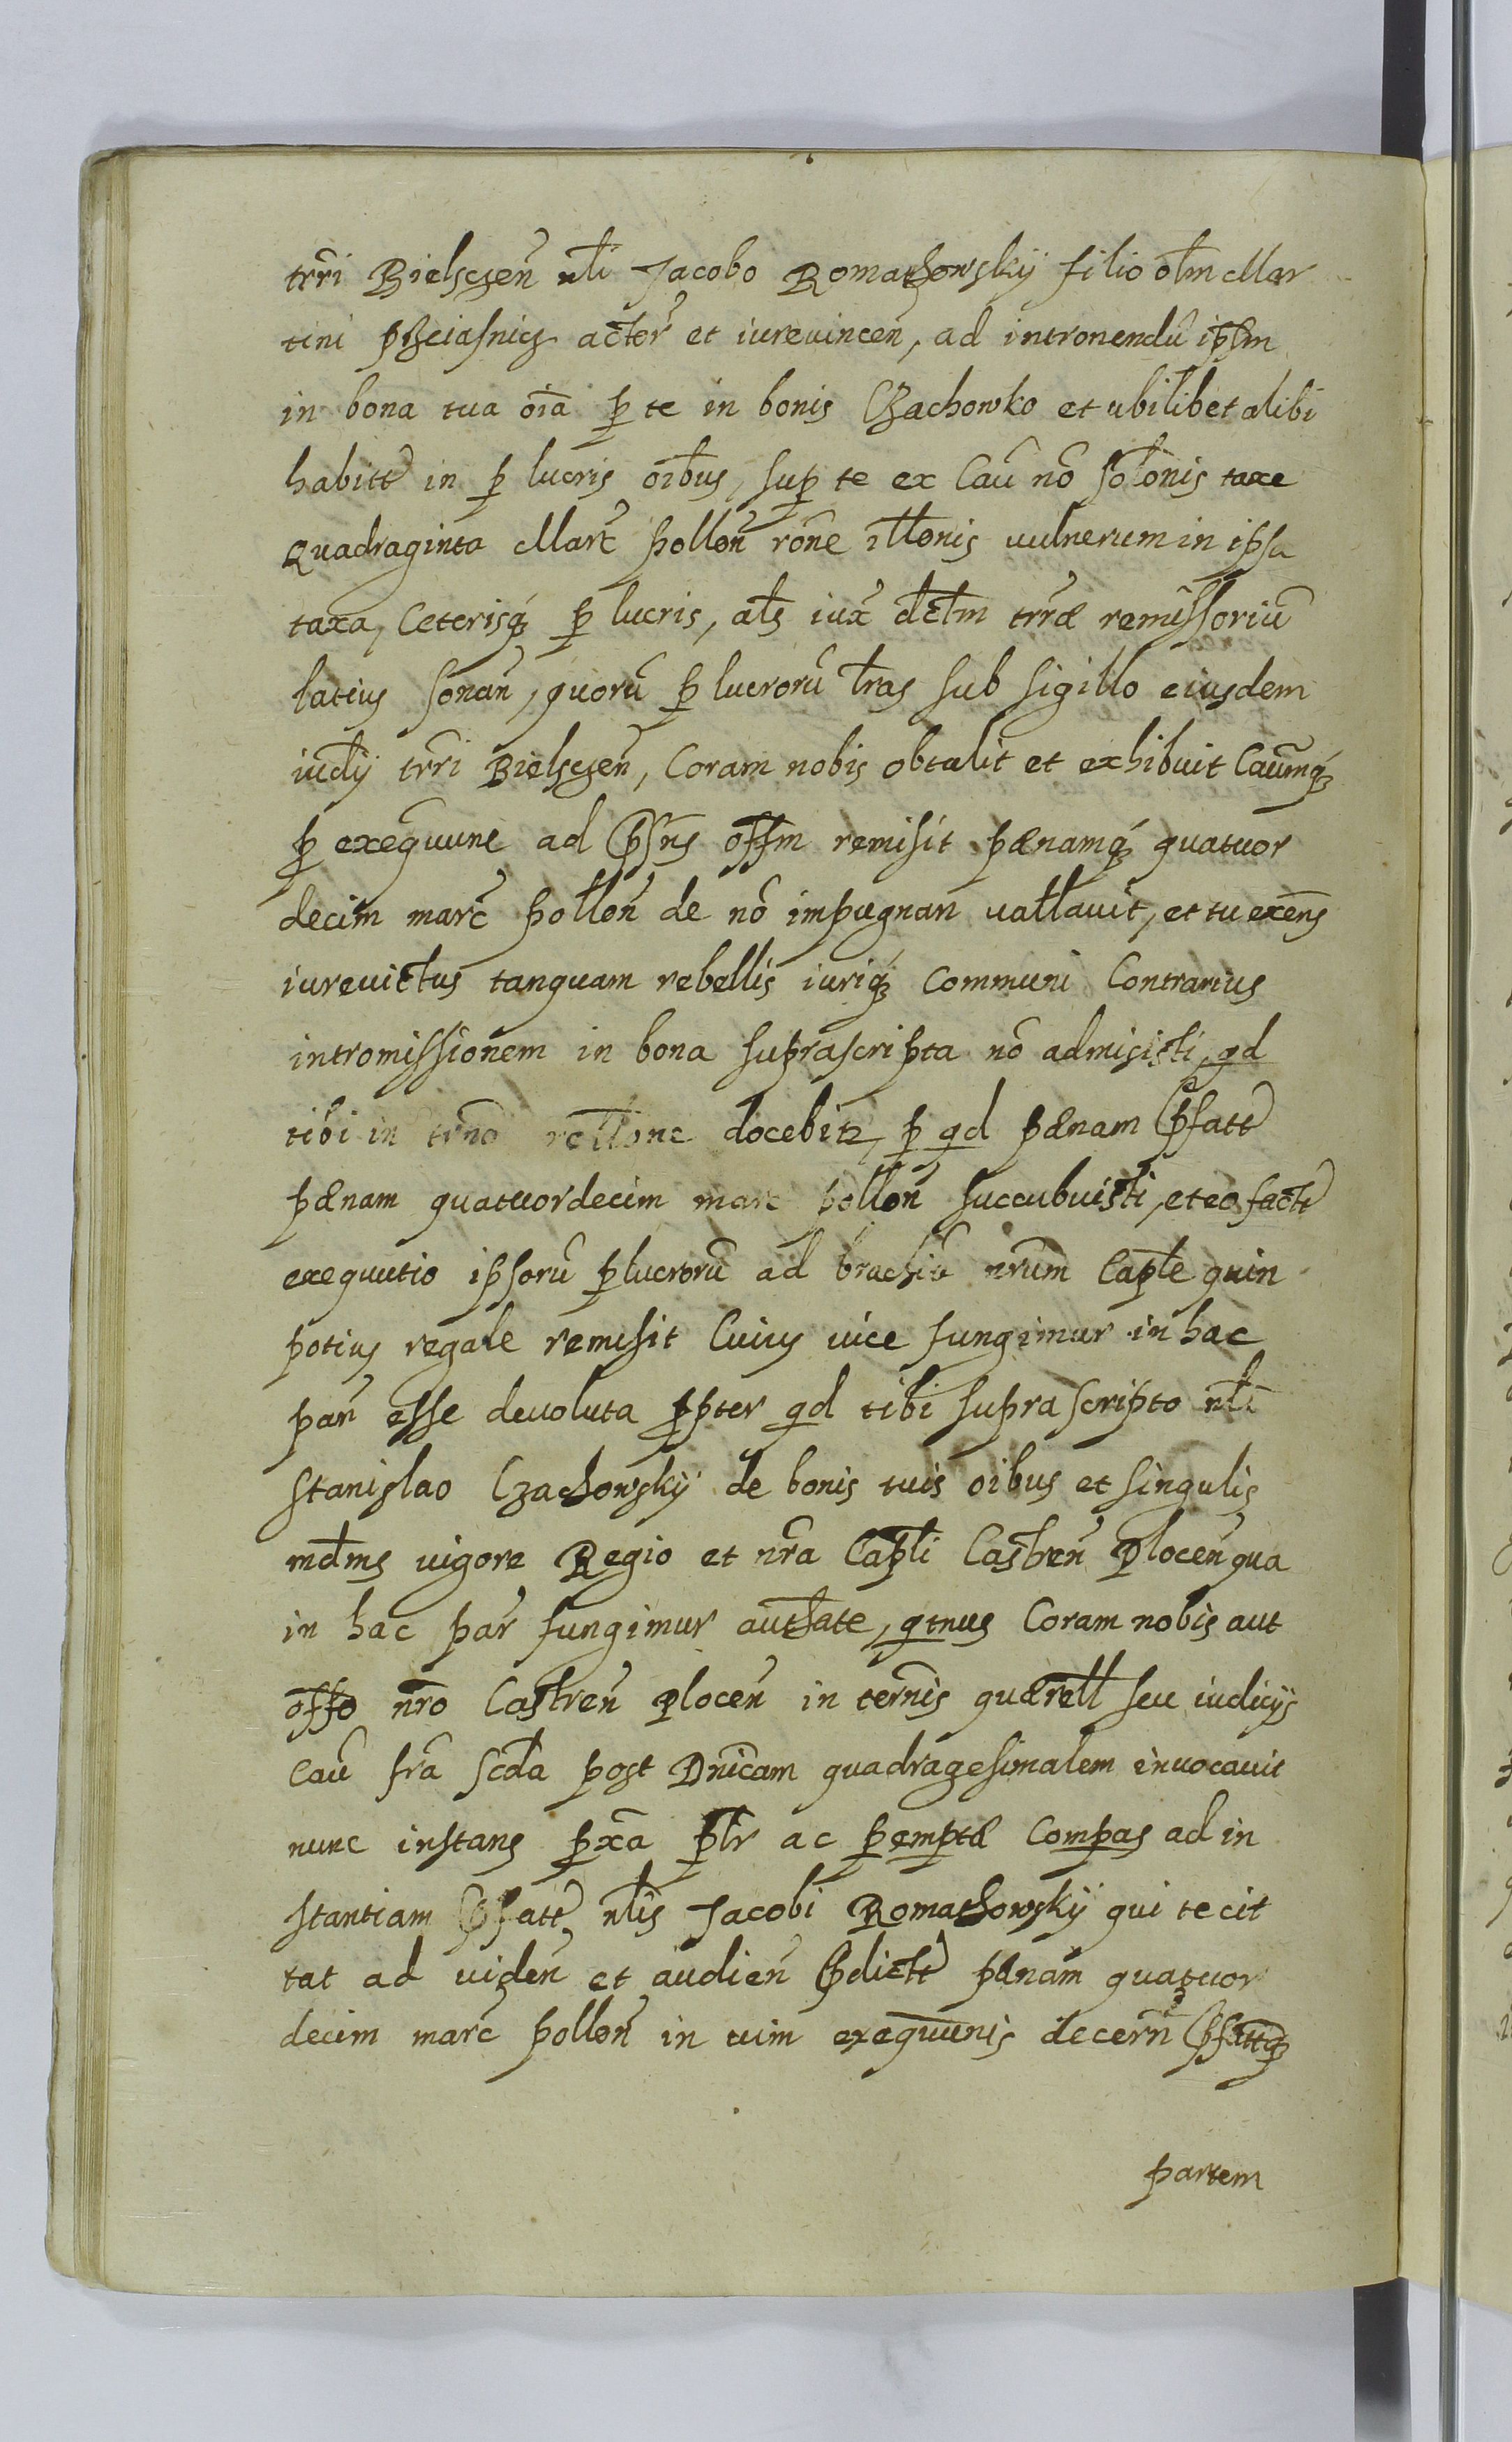 trri Bielscen̄ nli Jacobo Romathowskij filio olm Mar
tini actor̄ et iurevincen̄, ad intromendū ipsm
in bona tua oīa p te in bonis Czachowko et ubilibet alibi
habitt in p lucris oībus, sup te ex Caū nō solonis taxe
Quadraginta Marc̄ pollon̄ rōne illonis vulnerum in ipsa
taxa, Ceterisq́ p lucris, als iux̄ dctm trræ remissoriū
latius sonan̄, quorū p lucrorū lras sub sigillo eiusdem
iudij trri Bielscen̄, Coram nobis obtulit et exhibuit Caūmq́
p exeqūune ad p̄sns offm remisit pænamq́ quatuor
decim marc̄ pollon̄ de nō impugnan̄ vallavit, et tu exens
iurevictus tanquam rebellis iuriq́ Communi Contrarius
intromissionem in bona suprascripta nō admisisti, qd
tibi in trno rellone docebitr, p qd pænam p̄fatt
pænam quatuordecim marc pollon̄ succubuisti, et eo facte
exequutio ipsorū plucrorū ad brachiū nrūm Caple quin
potius regale remisit Cuius vice fungimur in hac
par̄ esse devoluta ppter qd tibi suprascripto nli
Stanislao Czachowskij de bonis tuis oībus et singulis
mdms vigore Regio et nr̄a Capli Castren̄ Plocen̄ qua
in hac par̄ fungimur authate, qtnus Coram nobis aut
offo nr̄o Castren̄ Plocen̄ in ternis quærell seu iudicijs
Caū fr̄a scda post Dnicam quadragesimalem invocavit
nunc instans pxa pltr ac pemptæ Compas ad in
stantiam p̄fatt nlis Jacobi Romathowskij qui te cit
tat ad viden̄ et audien̄ p̄dictt pænam quatuor
decim marc̄ pollon̄ in vim exeqūunis decern̄ p̄fattq́
partem